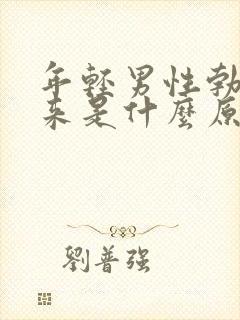 年輕男性勃
来是什麼原
劉普强